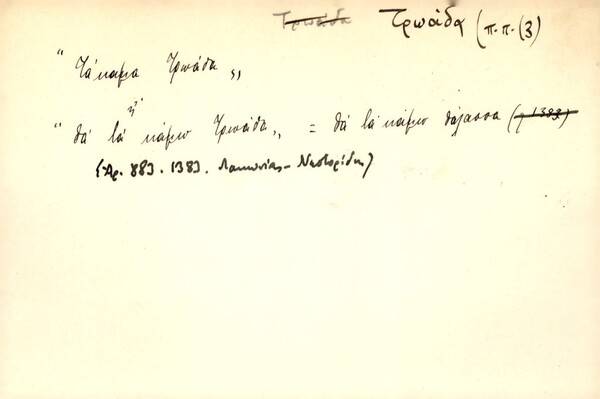 Τρωάδα Τρωάδα (π.π. (3)
" Τά'καμα Τρωάδα "
" θά τά κάμω Τρωάδα " = θά τά κάμω θάλασσα (1383)
(Άρ. 883. 1383. Λακωνίας - Νεστορίδη)